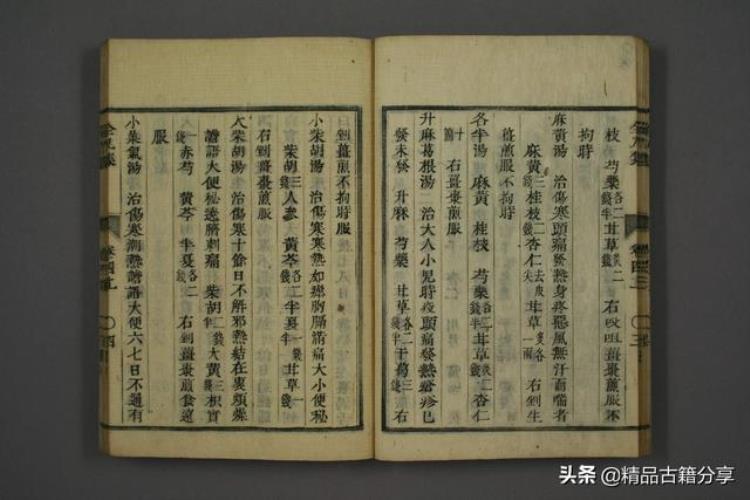 枝 芍藥各二錢半甘草錢二 右㕮咀薑棗煎服不
拘時
麻黃湯 治傷寒頭痛發熱身疼惡風無汗而喘者
麻黃三錢桂枝二錢杏仁去皮尖甘草 右剉生
薑煎服不拘時
各半湯 麻黃 桂枝 芍藥 甘草 杏仁
十箇 右薑棗煎服
升麻葛根湯 治大人小兒時疫頭痛發熱瘡疹已
發未發 升麻 芍藥 甘草各二錢半干葛三錢 右
剉薑棗煎不拘時服
小柴胡湯 治傷寒寒熱如瘧胸膈滿痛大小便秘
柴胡三錢人參 黃芩各二錢半夏一錢甘草一錢
右剉薑棗煎服
大柴胡湯 治傷寒十餘日不解邪熱結在裏頭燥
譫語大便秘遶臍刺痛 柴胡 大黃 枳實
一錢赤芍 黃芩 半夏各二錢 右剉薑棗煎食遠
服
小柴氣湯 治傷寒潮熱譫語大便六七日不通有
頭条 @精品古籍分享